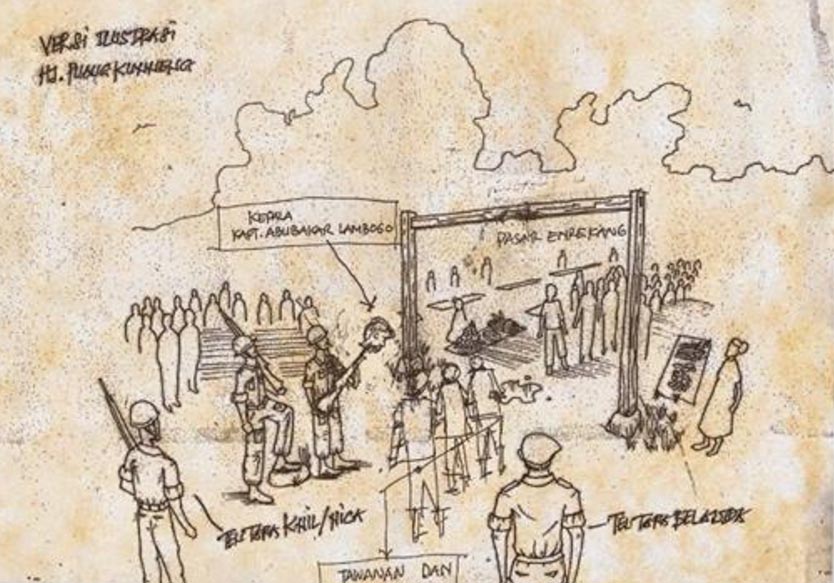 VERSI ILUSTRASI
HJ.
KEPALA
KAPT. ABUBAKAR LAMBOGO
PASAR ENREKANG
TENTARA KNIL/NICA
TENTARA BELANDA
TAWANAN DAN